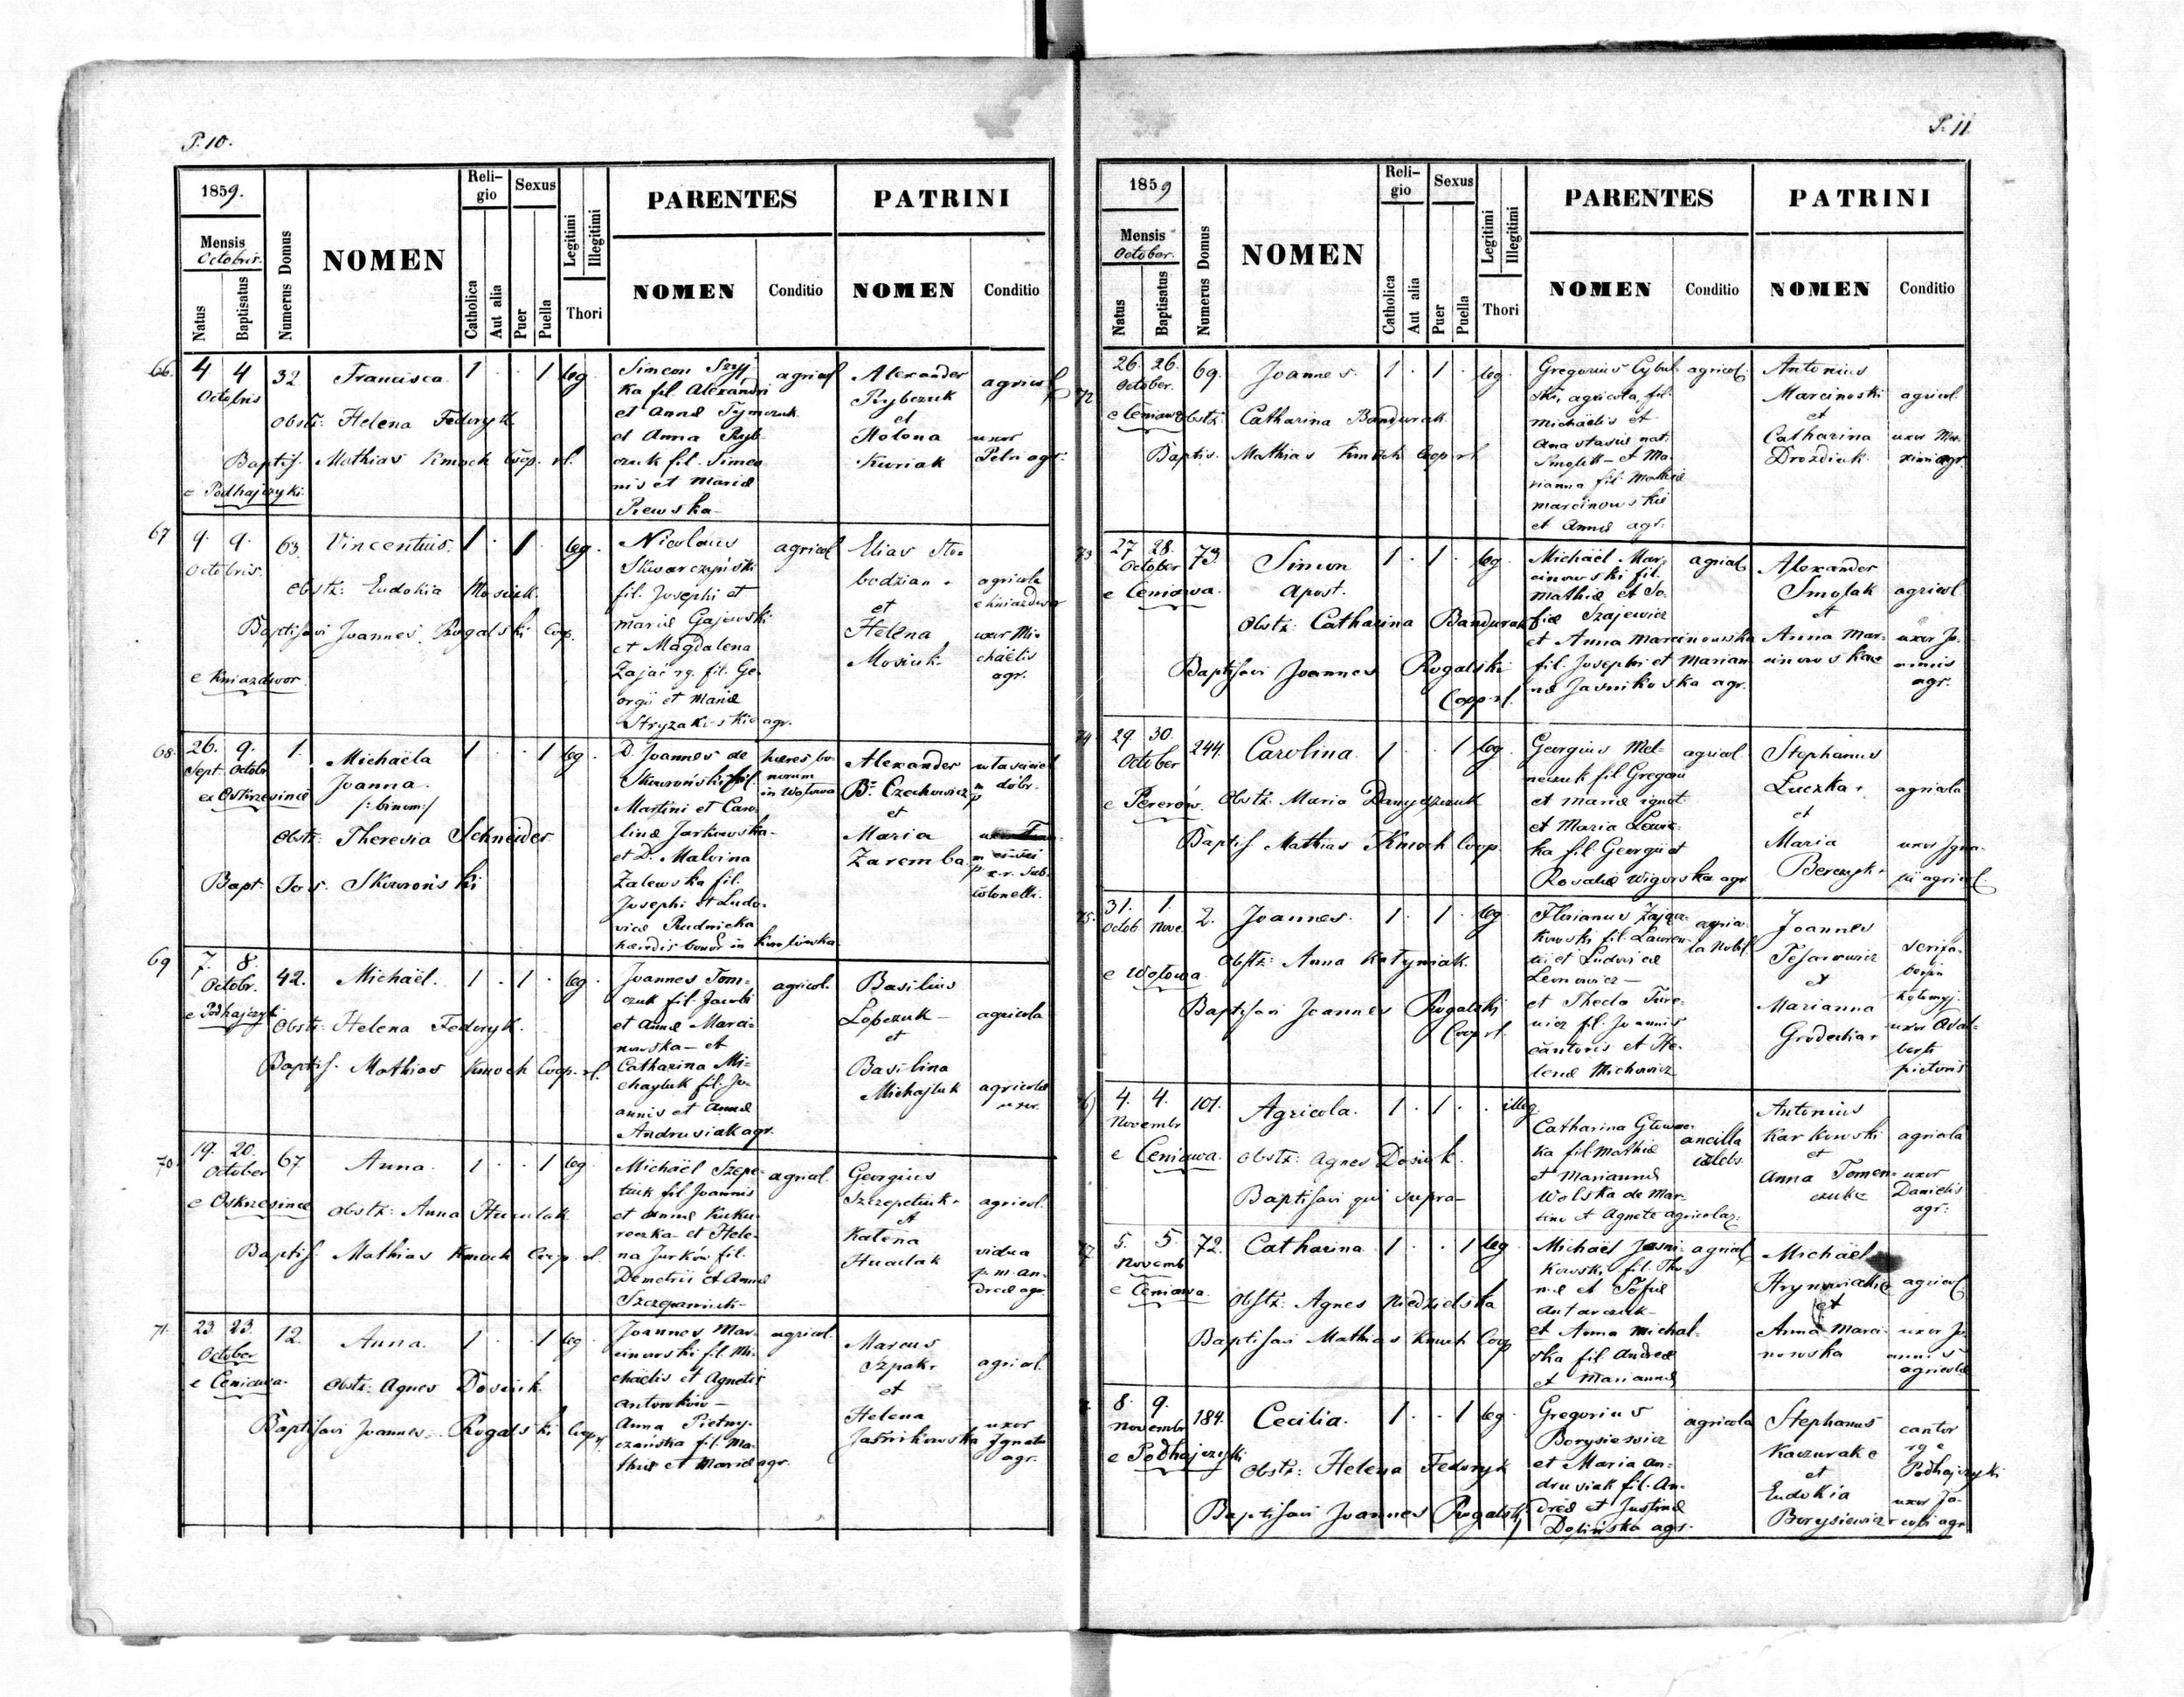 P. 10.
1859.
Mensis
Octobris
Natus
Baptisatus
Numerus Domus
NOMEN
Religio
Catholica
Aut alia
Sexus
Puer
Puella
Legitimi
Illegitimi
Thori
PARENTES
NOMEN
Conditio
PATRINI
NOMEN
Conditio
66. 4 4 32. Francisca. 1 . . 1 leg.
Octobris
Obstr: Helena Fedoryk
Baptis. Mathias Kmoch Coop. rl.
e Podhajczyki
Simeon Szyj
ka fil. Alexandri
et Annæ Tymczuk
et Anna Ryb
czuk fil. Simeo
nis et Mariæ
Piewska
agricol
Alexander
Rybczuk
et
Helena
Kuriak
agricol
uxor
Petri agr.
67 9. 9. 63. Vincentius. 1 . 1 . leg.
Octobris.
Obstz: Eudokia Mosiuk.
Baptisavi Joannes Rogalski Coop.
e Kniazdwor.
Nicolaus
Skwarczyński
fil. Josephi et
mariæ Gajewski
et Magdalena
Zając rg. fil. Ge
orgii et Mariæ
Stryzakiskie agr.
agricol
Elias Sło=
bodzian
et
Helena
Mosiuk.
agricola
e Kniazdwor
uxor Mi=
chaëlis
agr.
68. 26. 9. 1. Michaëla 1 . . 1 leg.
Sept. Octobr.
Joanna.
/:binom:/
ex Oskrzesince
Obstr: Theresia Schneider
Bapt: Jos. Skworoński
D. Joannes de
Skworoński fil.
Martini et Caro
linæ Jarkowska
et D. Malvina
Zalewska fil.
Josephi et Ludo=
vicæ Rudnicka
hæredis bonor in
hæres bo
norum
in Wołowa
Alexander
Br. Czechowicz
et
Maria
Zaremba
własciciel
dóbr.
colonelli.
69 7. 8. 42. Michaël. 1 . 1 . leg.
Octobr.
e Podhajczyki
Obstr: Helena Fedoryk.
Baptis. Mathias Kmoch Coop. rl.
Joannes Tom=
czuk fil. Jacobi
et Annæ Marci=
nowska et
Catharina Mi=
chayluk fil. Jo=
annis et Annæ
Andrusiak agr.
agricol.
Basilius
Lobczuk
et
Basilina
Michajluk
agricola
agricolæ
uxor.
70. 19. 20. 67. Anna. 1 . . 1 leg.
October
e Oskrzesince
Obstz: Anna Huculak
Baptis. Mathias Kmoch Coop. rl
Michaël Szepe
tiuk fil Joannis
et Annæ Kuku
roczka et Hele=
na Jurków fil.
Demetrii et Annæ
Szczepaniuk
agricol.
Georgius
Szczepetiuk
et
Katena
Huculak
agricol.
vidua
p. m. An=
dreæ agr.
71. 23. 23. 12. Anna. 1 . . 1 leg
October
e Ceniawa.
Obstz: Agnes Dosiuk.
Baptisavi Joannes Rogalski Coop. rl.
Joannes Mar=
cinowski fil. Mi=
chaëlis et Agnetis
Antowków
Anna Pietny=
czańska fil. Ma
thiæ et Mariæ agr.
agricol.
Marcus
Szpak
et
Helena
Jaśnikowska
agricol.
uxor
Ignatii
agr.
P. 11
1859
Mensis
October.
Natus
Baptisatus
Numerus Domus
NOMEN
Religio
Catholica
Aut alia
Sexus
Puer
Puella
Legitimi
Illegitimi
Thori
PARENTES
NOMEN
Conditio
PATRINI
NOMEN
Conditio
72 26. 26. 69. Joannes. 1 . 1 . leg
October.
e Ceniawa
Obstz: Catharina Bandurak
Baptis. Mathias Kmoch Coop rl
Gregorius Cybul
ski, agricola, fil.
Michaëlis et
Anastasiæ nat:
Smolik et Ma=
rianna fil. Mathiæ
Marcinowskie
et Annæ agr.
agricol.
Antonius
Marcinoski
et
Catharina
Drozdiuk
agricol.
uxor Ma=
ximi agr.
73 27 28. 73. Simon 1 . 1 . leg
October
Apost.
e Ceniawa.
Obstz: Catharina Bandurak
Baptisavi Joannes Rogalski
Coop rl.
Michaël Mar=
cinowski fil.
Mathiæ et So=
fiæ Szajewicz
et Anna Marcinowska
fil. Josephi et Marian
næ Jasnikoska agr.
agricol
Alexander
Smolak
et
Anna Mar=
cinowska
agricol.
uxor Jo=
annis
agr.
74 29 30. 244. Carolina. 1 . . 1 leg
October
e Pererów.
Obstz: Maria Danyszczuk
Baptis Mathias Kmoch Coop.
Georgius Mel=
neczuk fil Gregorii
et Mariæ ignot.
et Maria Lewic=
ka fil. Georgii et
Rosaliæ Wigorska agr
agricol.
Stephanus
Luczka
et
Maria
Berczyk
agricola
uxor Igna=
tii agricol.
75. 31. 1. 2. Joannes. 1 . 1 . leg
Octob. Nove.
e Wołowa
Obstz: Anna Kotyniak.
Baptisavi Joannes Rogalski
Coop rl.
Florianus Zającz
kowski fil. Lauren=
tii et Ludovicæ
Leonowicz
et Thecla Ture=
wicz fil. Joannis
cantoris et He=
lenæ Michowicz
agrico
la nobil.
Joannes
Tesarowicz
et
Marianna
Grodecka
uxor Adal=
berti
pictoris
76) 4. 4. 101. Agricola. 1 . 1 . illeg.
Novembr
e Ceniawa.
Obstz: Agnes Dosiuk.
Baptisavi qui supra
Catharina Głowac=
ka fil Mathiæ
et Mariannæ
Wolska de Mar=
tino et Agnete agricolar.
ancilla
cœlebs.
Antonius
Karkowski
et
Anna Tomen=
czuk
agricola
uxor
Danielis
agr.
77 5. 5. 72. Catharina 1 . . 1 leg
Novemb
e Ceniawa.
Obstz: Agnes Niedzielska
Baptisavi Mathias Kmoch Coop
Michaël Jasni=
kowski fil. Tho=
mæ et Sofiæ
Antarczuk
et Anna Michal=
ska fil Andreæ
et Mariannæ
agricol
Michaël
et
Anna Marci=
nowska
agricol
uxor Jo=
annis
agricolæ
8. 9. 184. Cecilia. 1 . . 1 leg.
Novembr
e Podhajczyki
Obstz: Helena Fedoryk
Baptisavi Joannes Rogalski
Gregorius
Borysiewicz
et Maria An=
drusiak fil. An=
dreæ et Justinæ
Dolińska agr.
agricola
Stephanus
Kaczurak
et
Eudokia
Borysiewicz
cantor
rg e
Podhajczyki
uxor Ja=
cobi agr